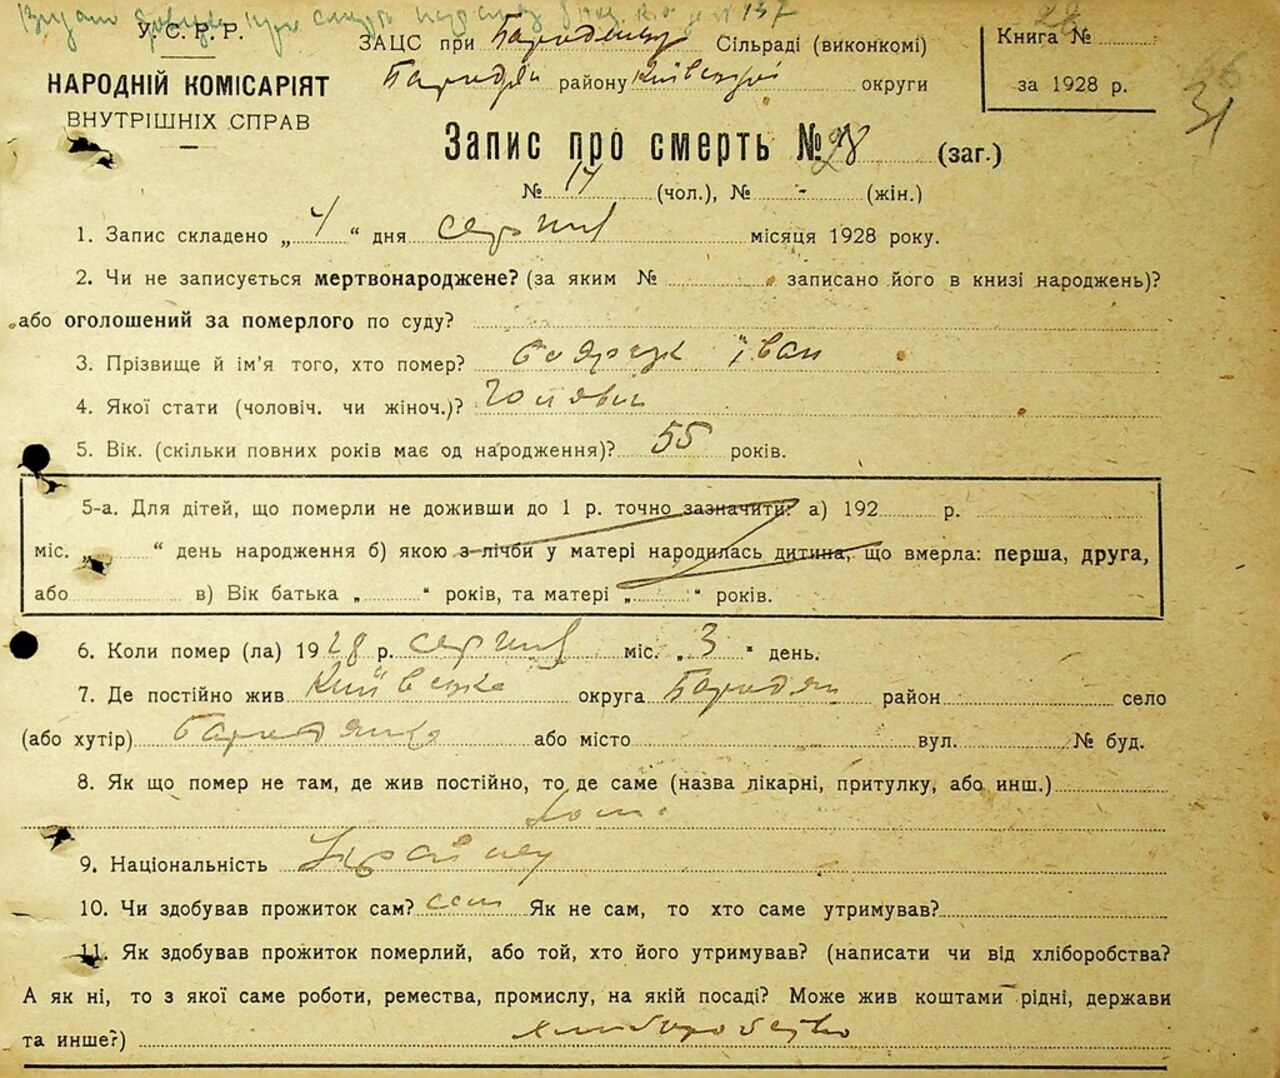 У.С.Р.Р.
НАРОДНІЙ КОМІСАРІЯТ
ВНУТРІШНІХ СПРАВ
ЗАЦС при Сільраді (виконкомі)
Бородян району Київської округи
Книга №
за 1928 р.
31
Запис про смерть № 28 (заг.)
№ 14 (чол.), № - (жін.)
1. Запис складено „ 4 “ дня серпня місяця 1928 року.
2. Чи не записується мертвонароджене? (за яким № записано його в книзі народжень)?
або оголошений за померлого по суду?
3. Прізвище й ім'я того, хто помер? Іван
4. Якої стати (чоловіч. чи жіноч.)? Чоловіч
5. Вік. (скільки повних років має од народження)? 55 років.
5-а. Для дітей, що померли не доживши до 1 р. точно зазначити: а) 192 р.
міс. „ “ день народження б) якою з лічби у матері народилась дитина, що вмерла: перша, друга,
або в) Вік батька „ “ років, та матері „ “ років.
6. Коли помер (ла) 1928 р. серпня міс. „ 3 “ день.
7. Де постійно жив Київська округа Бородян район село
(або хутір) Бородянка або місто вул. № буд.
8. Як що помер не там, де жив постійно, то де саме (назва лікарні, притулку, або инш.)
9. Національність
10. Чи здобував прожиток сам? сам Як не сам, то хто саме утримував?
11. Як здобував прожиток померлий, або той, хто його утримував? (написати чи від хліборобства?
А як ні, то з якої саме роботи, ремества, промислу, на якій посаді? Може жив коштами рідні, держави
та инше?) хліборобство